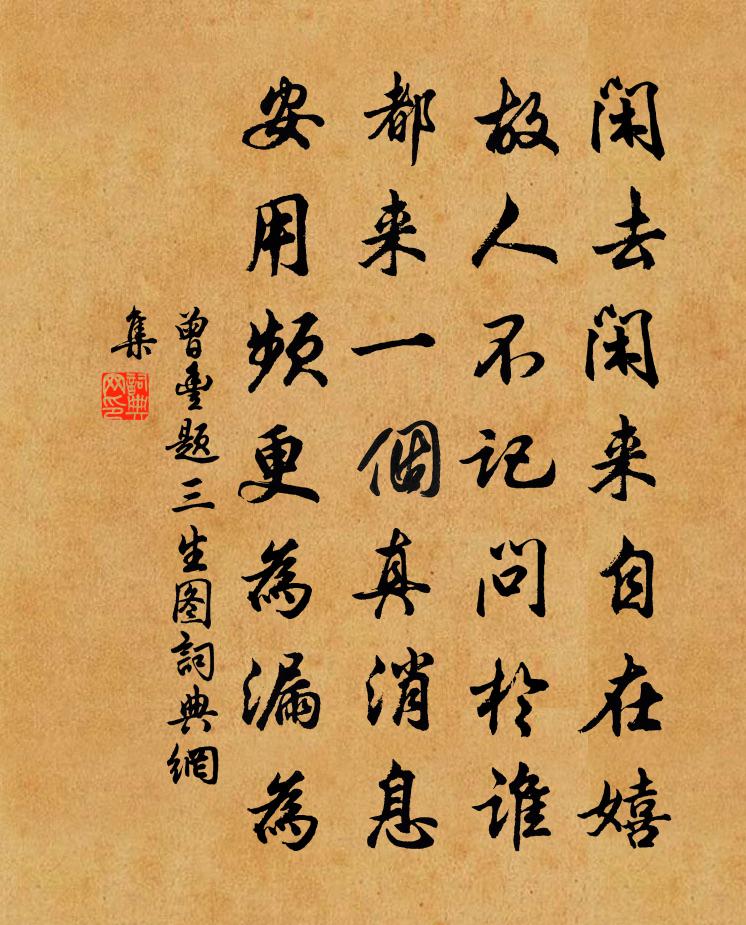 闲去闲来自在嬉
故人不记问於谁
都来一個真消息
安用频更為漏為
曾豊题三生图詞典網
集
詞典
网印